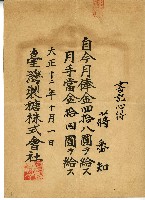 書記心得
蒋 垂 知
自今月俸金四拾八圓ヲ給ス
月手當金拾四圓ヲ給ス
大正十二年十月一日
臺灣製糖株式會社